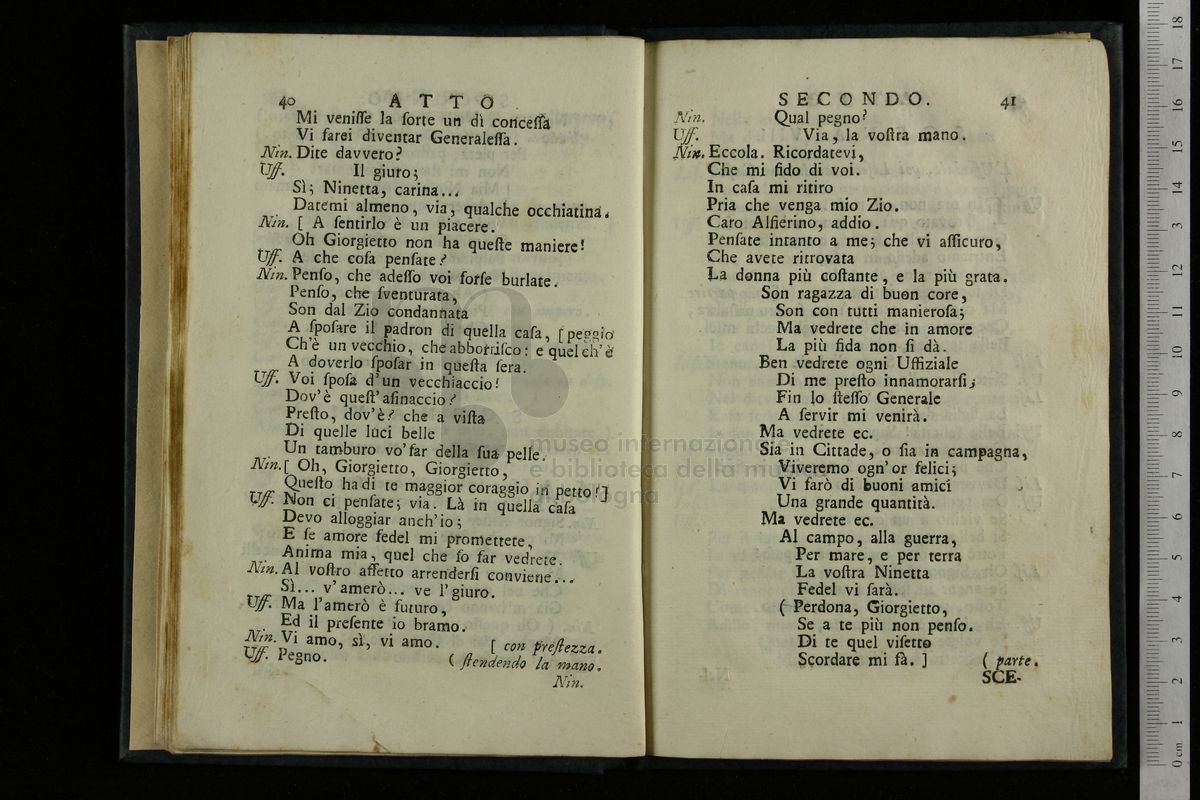 40 ATTO
Mi veniſſe la ſorte un dì conceſſa
Vi farei diventar Generaleſſa.
Nin. Dite davvero?
Uff. Il giuro;
Sì; Ninetta, carina...
Datemi almeno, via, qualche occhiatina.
Nin. [ A ſentirlo è un piacere.
Oh Giorgietto non ha queſte maniere!
Uff. A che coſa penſate?
Nin. Penſo, che adeſſo voi forſe burlate.
Penſo, che ſventurata,
Son dal Zio condannata
A ſpoſare il padron di quella caſa, [ peggio
Ch'è un vecchio, che abborriſco: e quel ch'è
A doverlo ſpoſar in queſta ſera.
Uff. Voi ſpoſa d'un vecchiaccio!
Dov'è queſt'aſinaccio?
Preſto, dov'è? che a viſta
Di quelle luci belle
Un tamburo vo' far della ſua pelle.
Nin. [ Oh, Giorgietto, Giorgietto,
Queſto ha di te maggior coraggio in petto!]
Uff. Non ci penſate; via. Là in quella caſa
Devo alloggiar anch'io;
E ſe amore fedel mi promettete,
Anima mia, quel che ſo far vedrete.
Nin. Al voſtro affetto arrenderſi conviene...
Sì... v'amerò... ve l'giuro.
Uff. Ma l'amerò è futuro,
Ed il preſente io bramo.
Nin. Vi amo, sì, vi amo. [ con preſtezza.
Uff. Pegno. ( ſtendendo la mano.
Nin.
SECONDO. 41
Nin. Qual pegno?
Uff. Via, la voſtra mano.
Nin. Eccola. Ricordatevi,
Che mi fido di voi.
In caſa mi ritiro
Pria che venga mio Zio.
Caro Alfierino, addio.
Penſate intanto a me; che vi aſſicuro,
Che avete ritrovata
La donna più coſtante, e la più grata.
Son ragazza di buon core,
Son con tutti manieroſa;
Ma vedrete che in amore
La più fida non ſi dà.
Ben vedrete ogni Uffiziale
Di me preſto innamorarſi;
Fin lo ſteſſo Generale
A ſervir mi venirà.
Ma vedrete ec.
Sia in Cittade, o ſia in campagna,
Viveremo ogn'or felici;
Vi farò di buoni amici
Una grande quantità.
Ma vedrete ec.
Al campo, alla guerra,
Per mare, e per terra
La voſtra Ninetta
Fedel vi ſarà.
( Perdona, Giorgietto,
Se a te più non penſo.
Di te quel viſetto
Scordare mi fà. ] ( parte.
SCE-
museo internazionale
e biblioteca della musica
di bologna